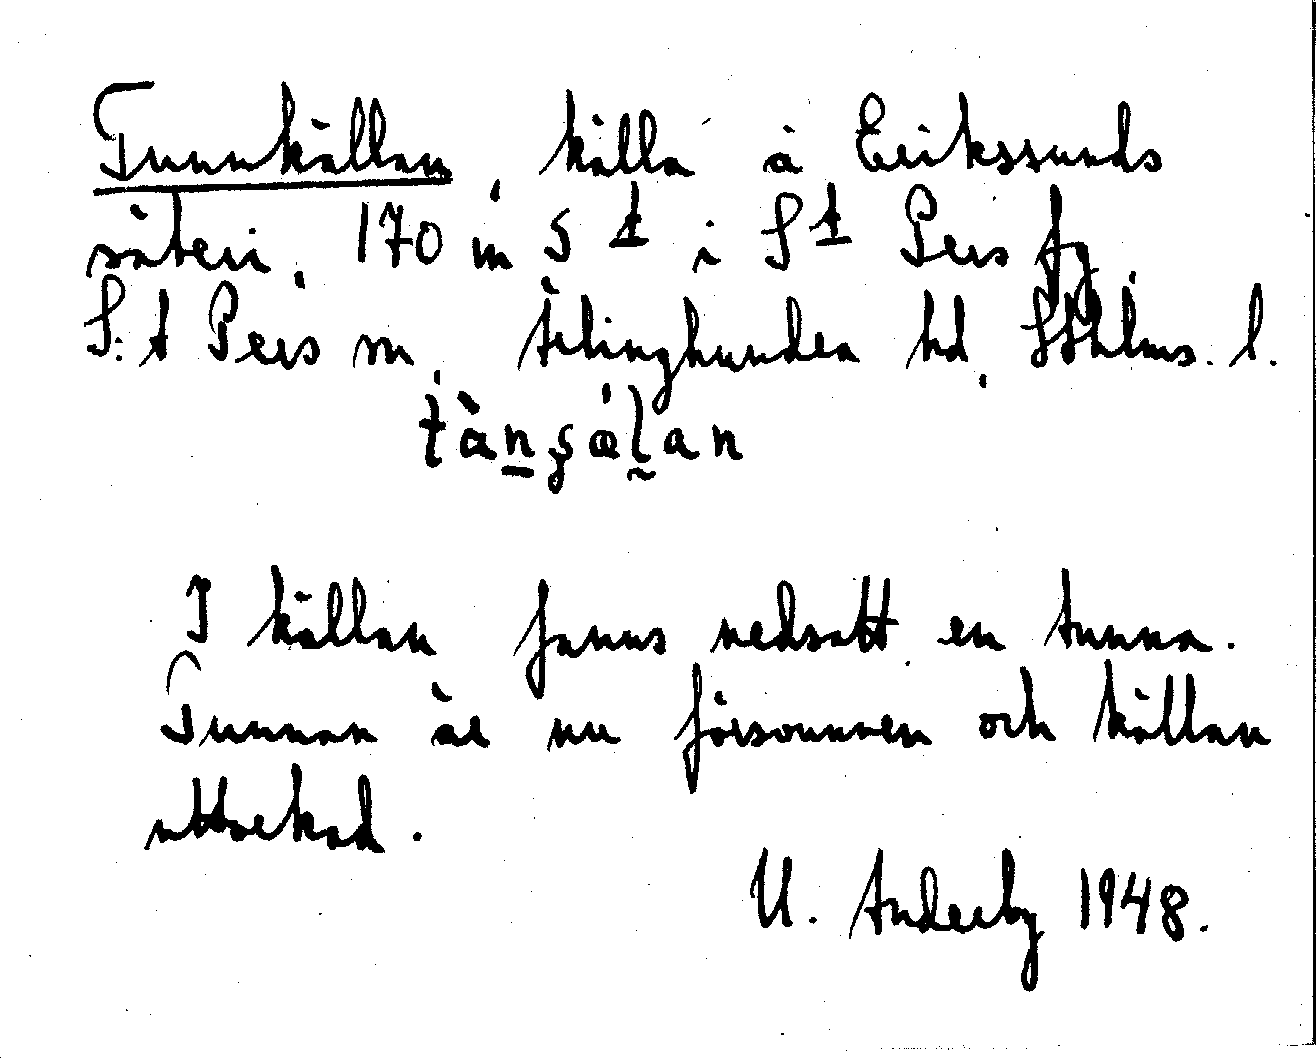 Tunnkällan, källa å Erikssunds
säteri, 170 m S t i St Pers fg,
S:t Pers sn, Ärlinghundra hd, Sthlms. l.
I källan fanns nedsatt en tunna.
Tunnan är nu försvunnen och källan
uttorkad.
U. Anderby 1948.